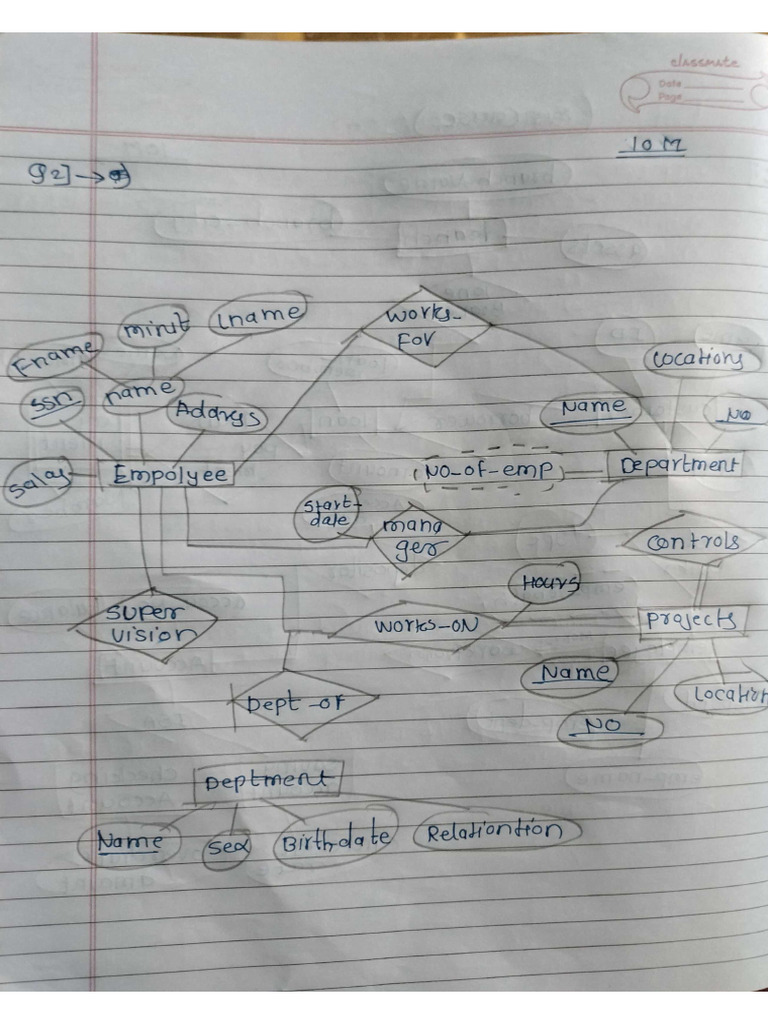 classmate
Date
Page
10 M
Q2] →
works-
For
Lname
minit
Fname
name
ssn
Address
Locations
Name
No
Salay
Empolyee
No-of-emp
Department
Start-
date
mana
ger
controls
Hours
super
vision
works-on
Projects
Name
Location
Dept-of
NO
Deptment
Name
Sex
Birthdate
Relationtion